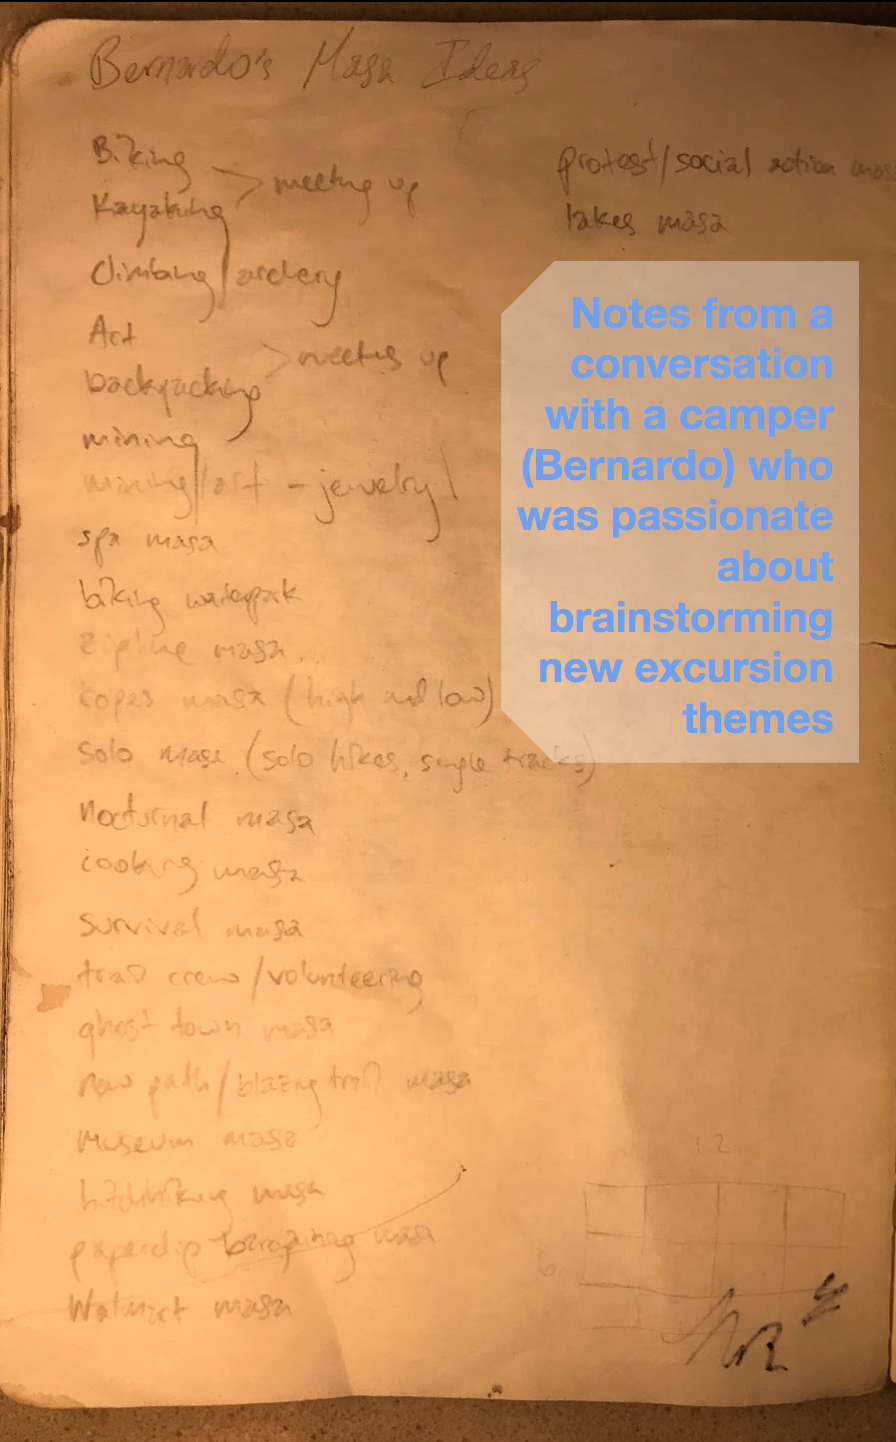 Bernardo's Masa Ideas
Biking
Kayaking > meeting up
Climbing/archery
Art
backpacking > meeting up
mining
mining/art - jewelry
spa masa
biking waterpark
zipline masa
ropes masa (high and low)
solo masa (solo hikes, single tracks)
nocturnal masa
cooking masa
survival masa
trail crew/volunteering
ghost town masa
new path/blazing trail masa
museum masa
hitchhiking masa
paperclip masa
Walmart masa
protest/social action masa
lakes masa
Notes from a
conversation
with a camper
(Bernardo) who
was passionate
about
brainstorming
new excursion
themes
12
6